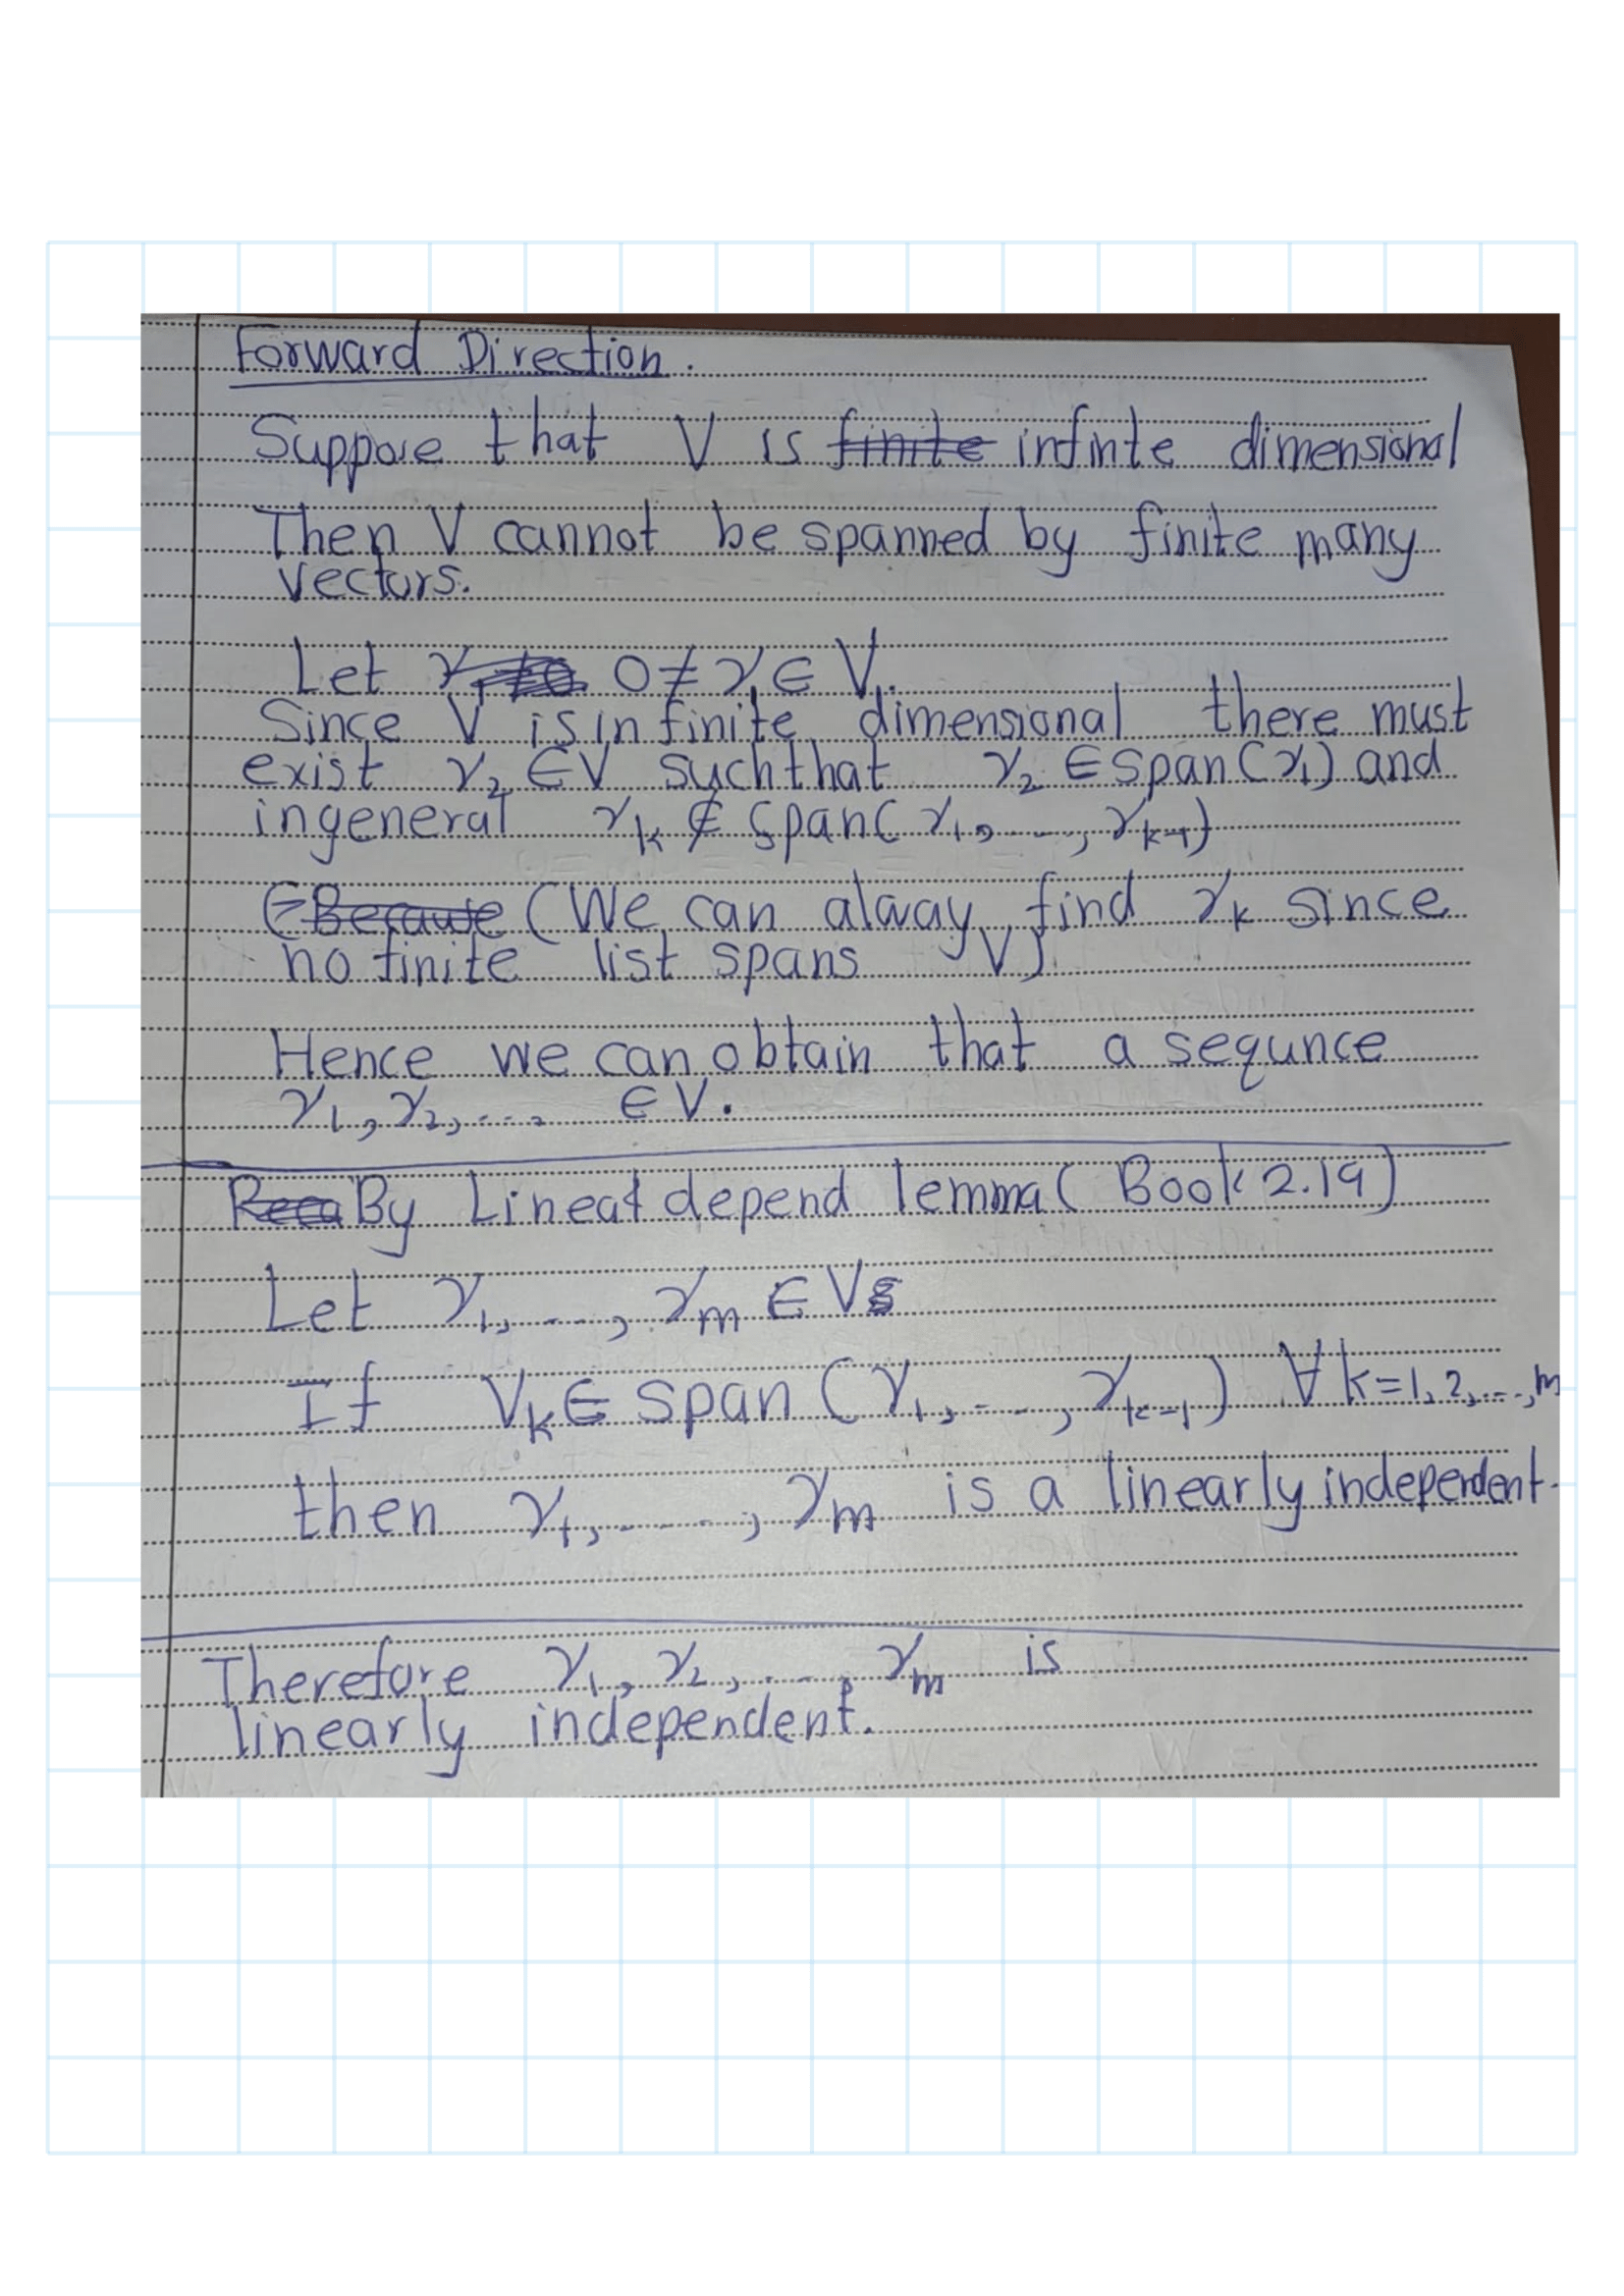 Forward Direction.
Suppose that V is finite infinte dimensional
Then V cannot be spanned by finite many
vectors.
Let 0 ≠ v₁ ∈ V.
Since V is infinite dimensional there must
exist v₂ ∈ V such that v₂ ∈ span(v₁) and
in general vₖ ∉ span(v₁, ..., vₖ₋₁)
Because (We can alway find vₖ since
no finite list spans V)
Hence we can obtain that a sequnce
v₁, v₂, .... ∈ V.
By Linear depend lemma (Book 2.19)
Let v₁, ..., vₘ ∈ V
If Vₖ ∈ span (v₁, ..., vₖ₋₁) ∀ k=1,2,...,m
then v₁, ...., vₘ is a linearly independent.
Therefore v₁, v₂, ..., vₘ is
linearly independent.